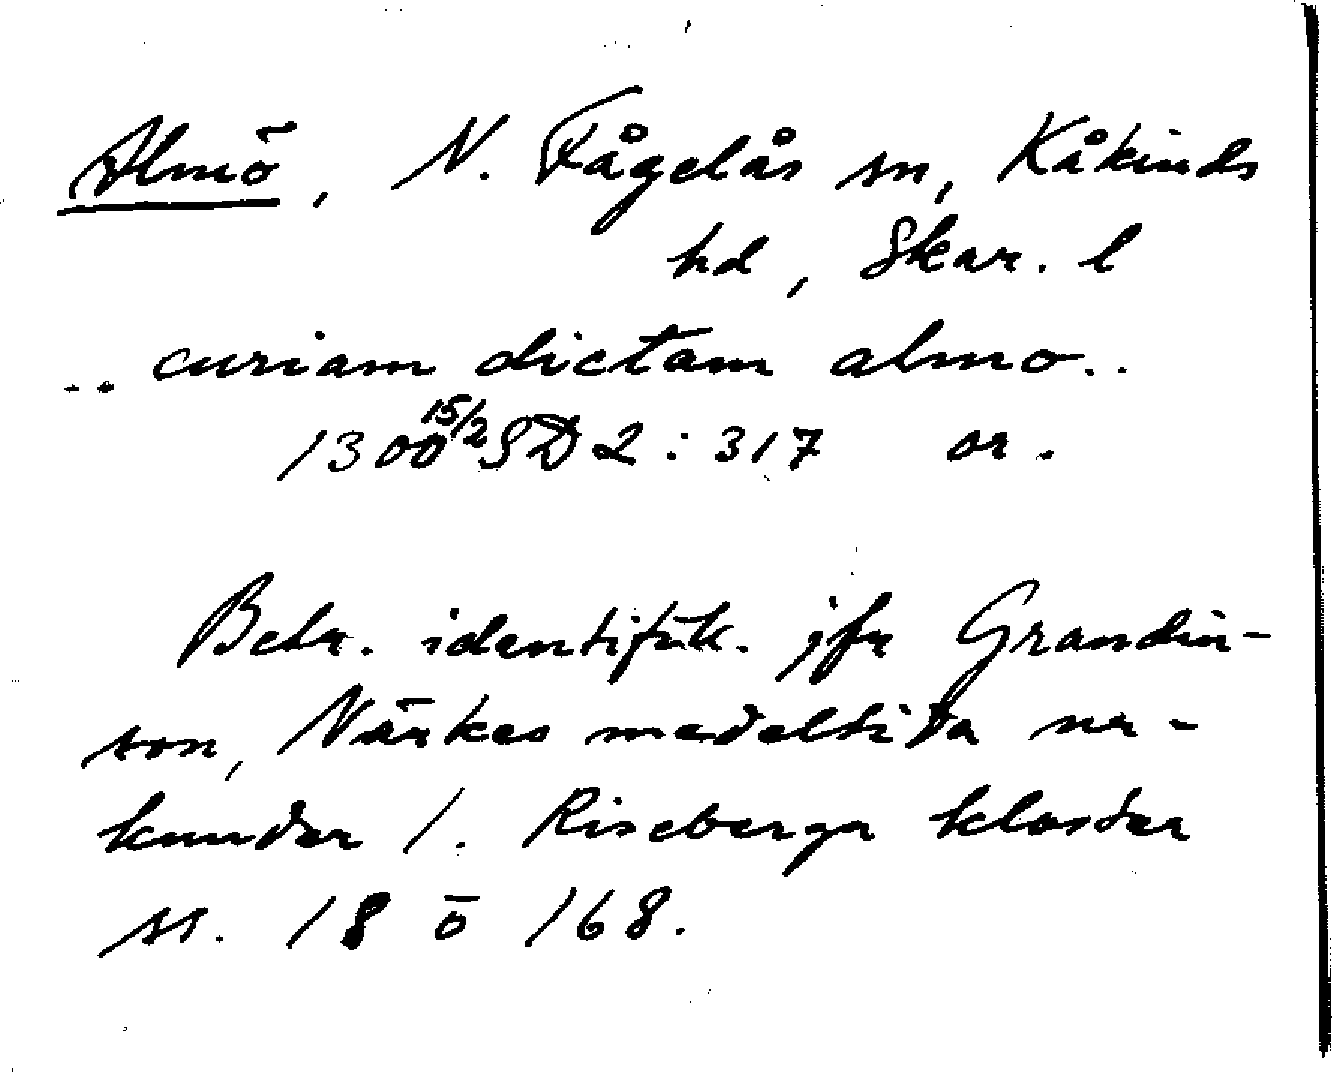 Almö, N. Fågelås sn, Kåkinds
hd, Skar. l
.. curiam dictam almo..
1300 15/2 SD 2:317 or.
Betr. identifik. jfr Grandin-
son, Närkes medeltida ur-
kunder 1. Riseberga kloster
ss. 18 o 168.